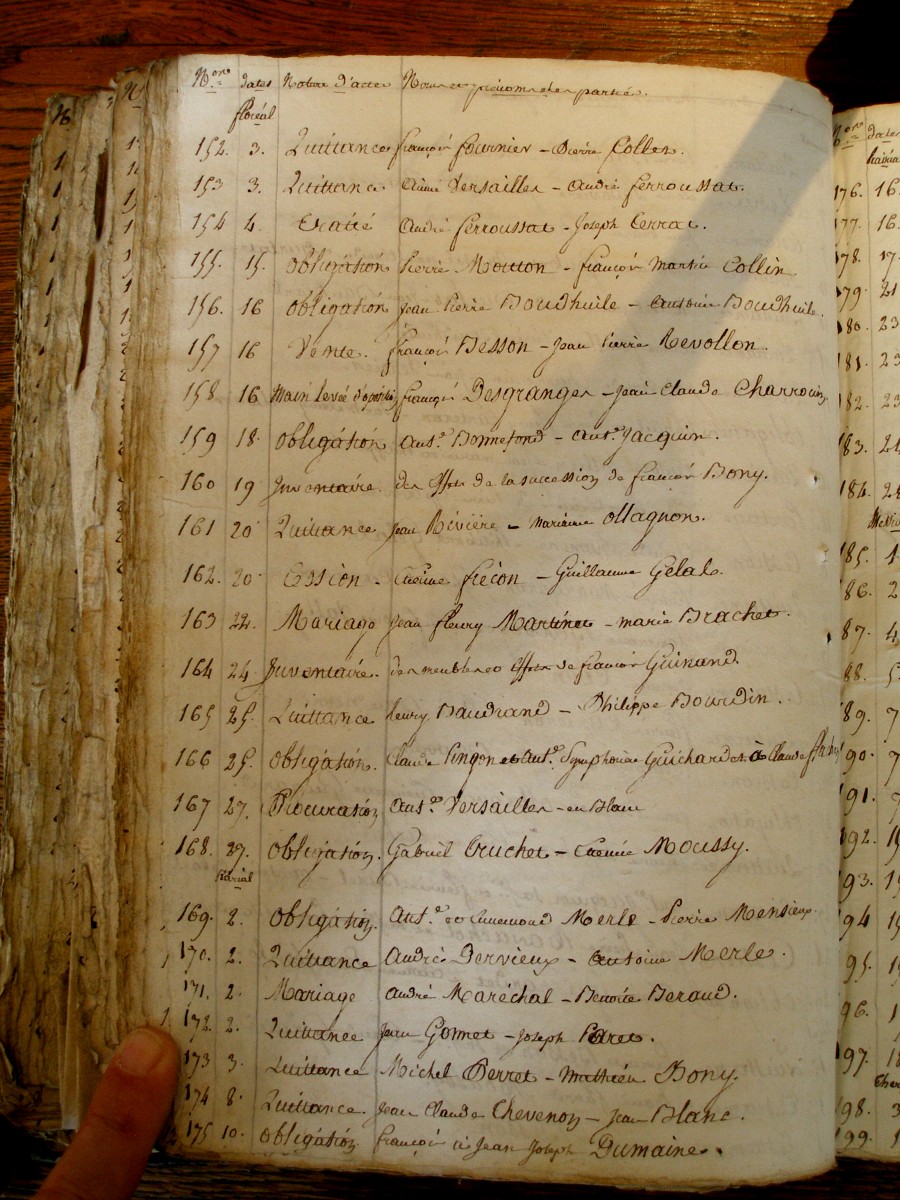 N.ros dates Nature d'actes Noms et prénoms des parties.
floréal
152. 3. Quittance françois fournier - Pierre Collet.
153 3. Quittance Aimé Versailles - André ferroussat.
154 4. Traité André ferroussat - Joseph Cerrat.
155. 15. Obligation Pierre Mouton - françois Martin Collin
156. 16 Obligation Jean Pierre Boudhuile - Antoine Boudhuile.
157 16 Vente. françois Besson - Jean Pierre Revollon.
158. 16 Main levée d'oposition françois Desgranges - Jean Claude Charrouin
159 18. Obligation Ant.e Bonnefond - Ant.e Jacquin.
160 19 Inventaire. des effets de la succession de françois Bony.
161 20 Quittance Jean Rivière - Marianne Ollagnon.
162. 20 Cession - Etienne frécon - Guillaume Gélas.
163 22. Mariage Jean fleury Martinet - marie Brachet.
164 24. Inventaire. des meubles et effets de françois Guinand.
165 25. Quittance fleury Baudrand - Philippe Bourdin.
166 25. Obligation. Claude Pingon et Ant.e Symphorien Guichardet à Claude
167 27. Procuration Ant.e Versailles - en blanc
168. 27. Obligation. Gabriel Cruchet - Etienne Moussy.
prairial
169. 2. Obligation. Ant.e et Ennemond Merle - Pierre Mensieux.
170. 2. Quittance André Dervieux - Antoine Merle.
171. 2. Mariage André Maréchal - Benoite Beraud.
172. 2. Quittance Jean Gonnet - Joseph Peret.
173 3. Quittance Michel Perret - Mathieu Bony.
174 8. Quittance. Jean Claude Chevenoz - Jean Blanc.
175 10. Obligation françois à Jean Joseph Dumaine.
N.ros dates
prairia
176. 16.
177. 16
178. 17
179. 21
180. 23
181. 23
182. 23
183. 24
184. 28
185. 1
186. 2
187. 4
188. 5
189. 7
190. 7
191.
192. 1
193. 1
194 1
195. 1
196. 1
197. 18
198. 3
199. 1